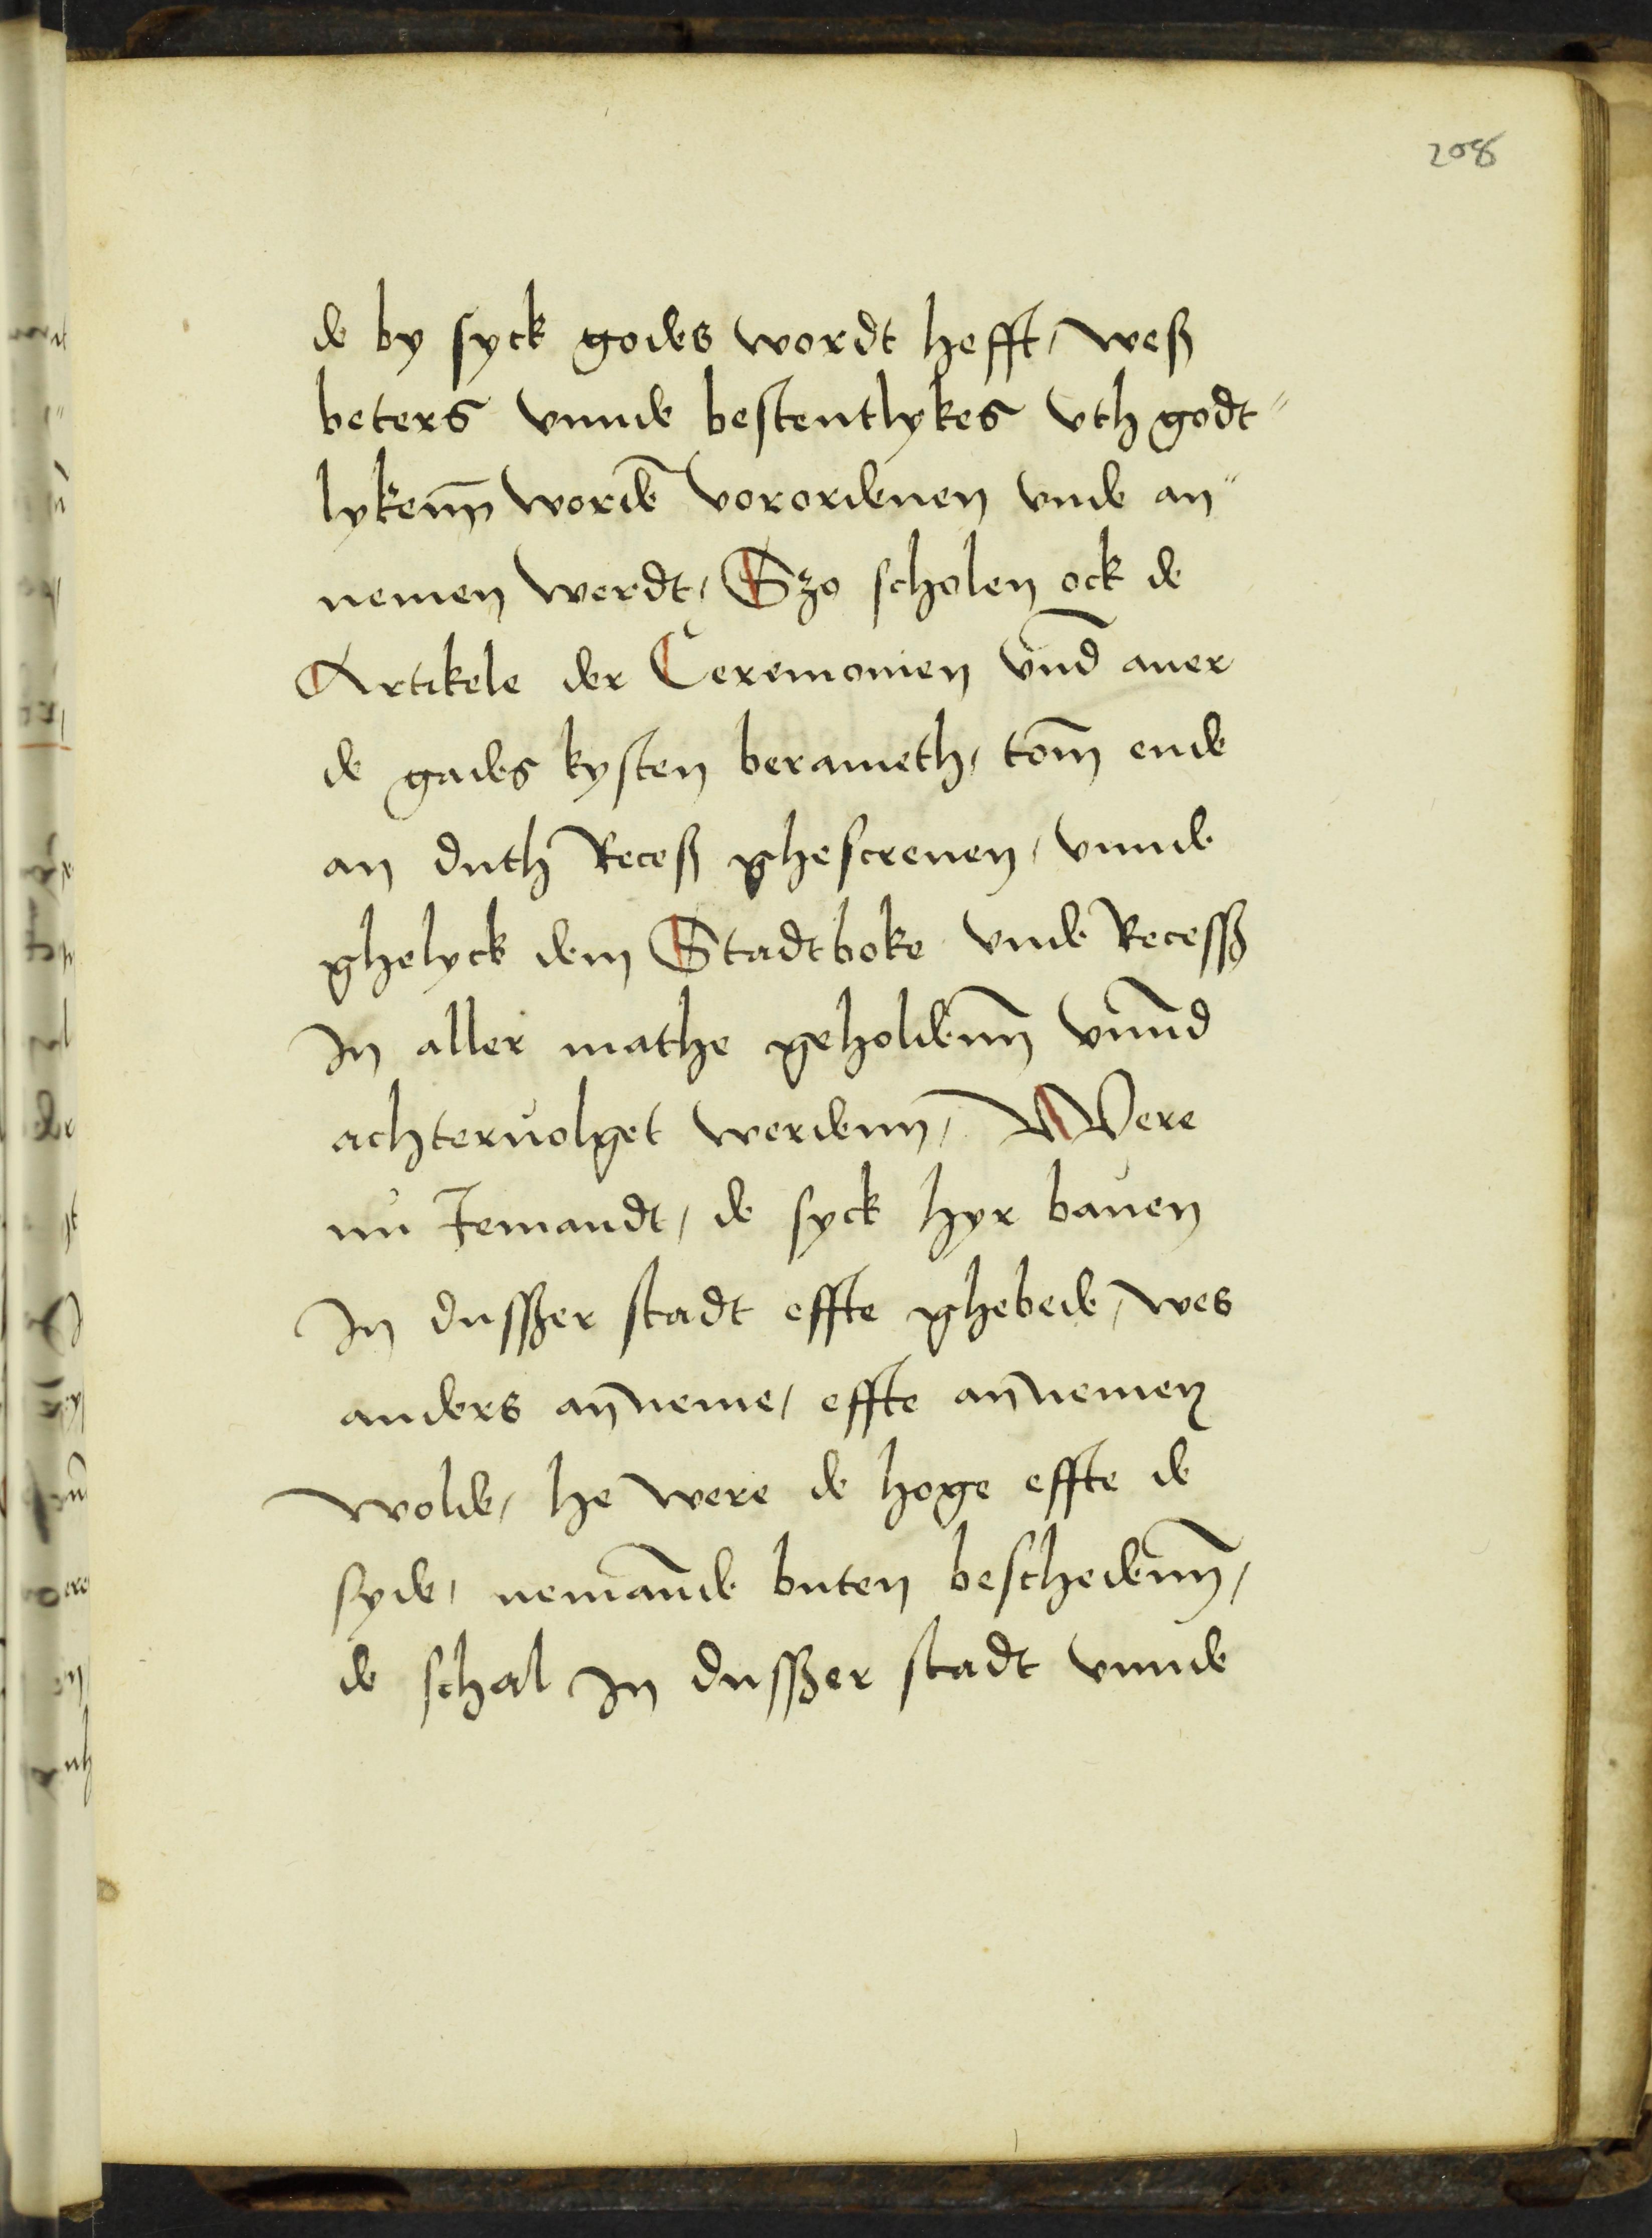 208
de by syck godes wordt hefft, weß
beters vnnde bestentlykes vth godt"
lykenn̄ wordē vorordenen vnde an"
nemen werdt, Szo scholen ock de
Artikele der Ceremonien vnd̄ auer
de gades kysten berameth, tom̄ ende
an duth Receß ghescreuen, vnnde
ghelyck dem Stadtboke vnde Recessß
In aller mathe geholdenn̄ vnnd̄
achteruolget werdenn, Were
nu Iemandt, de syck hyr bauen
In dusßer stadt effte ghebede, wes
anders an̄neme, effte an̄nemen
wolde, he were de hoge effte de
syde, nemān̄de buten beschedenn̄,
de schal In dusßer stadt vnnde